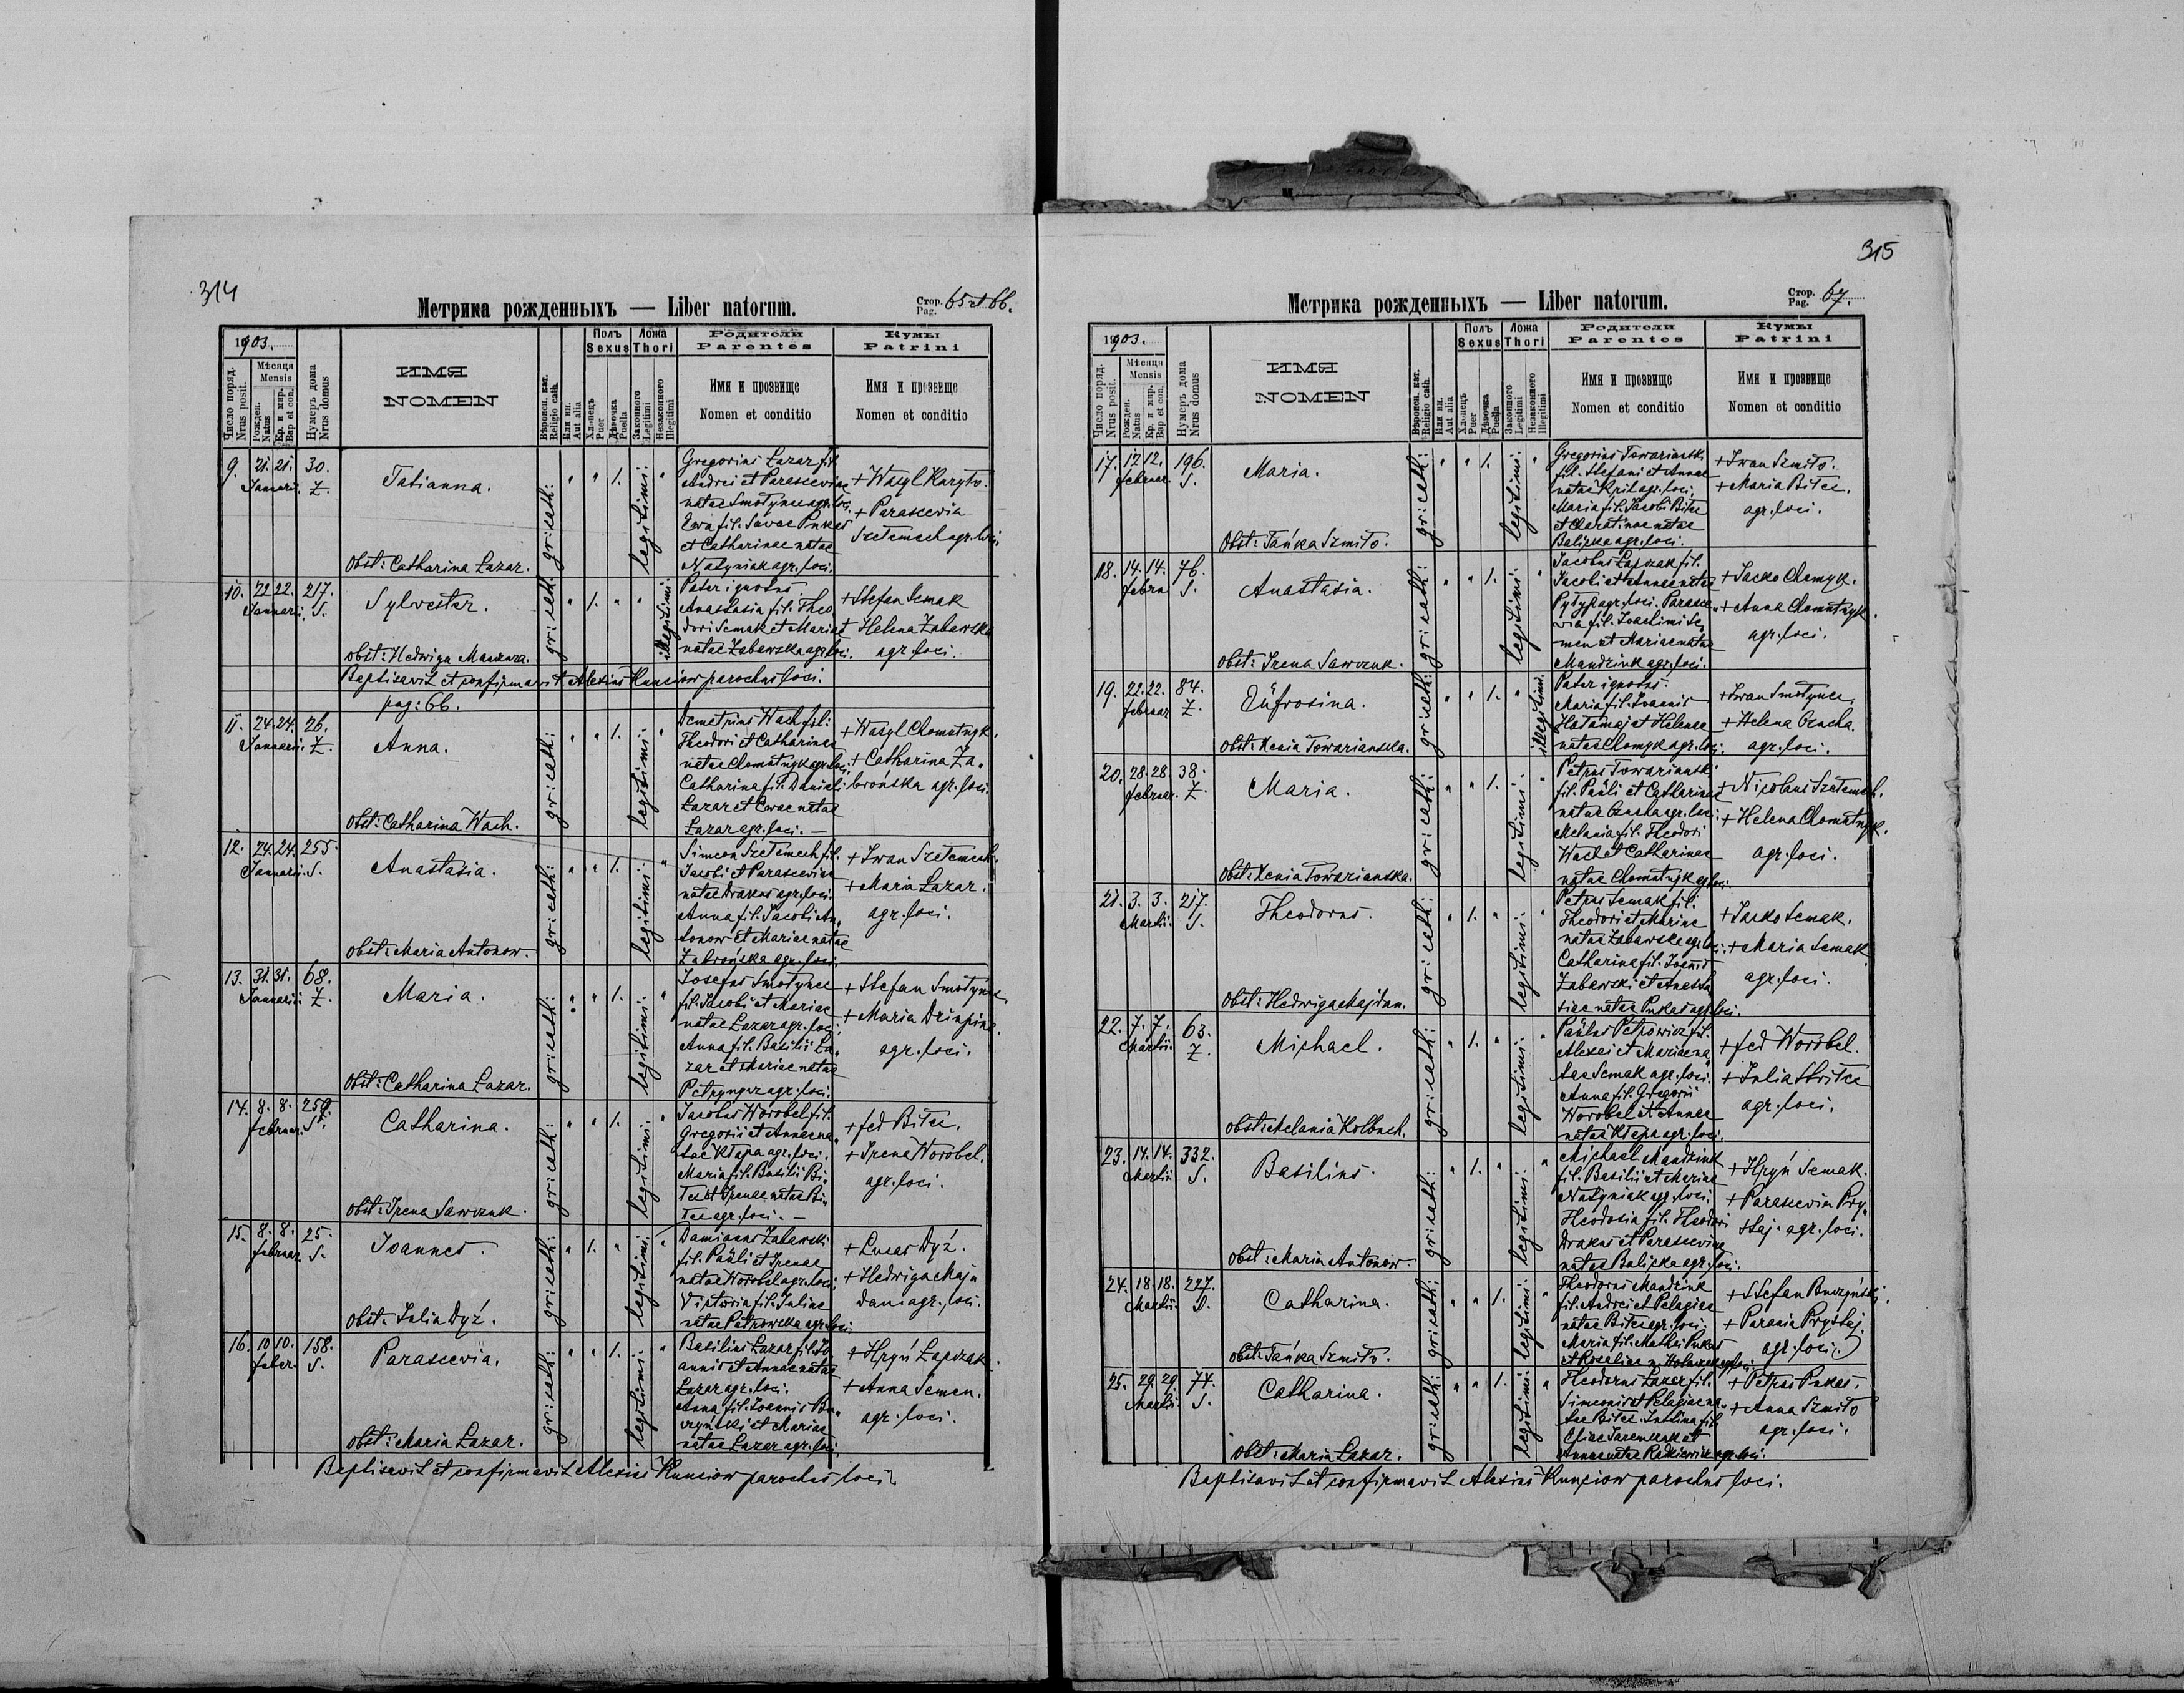 314
Метрика рожденныхъ — Liber natorum.
Стор. Pag. 65 et 66.
1903.
Число поряд. Nrus posit.
Мѣсяця Mensis
Рожден. Natus
Кр. и мир. Bap et con.
Нумеръ дома Nrus domus
ИМЯ
NOMEN
Вѣроисп. кат. Religio cath.
Или ин. Aut alia
Полъ Sexus
Хл-пецъ Puer
Дѣвочка Puella
Ложа Thori
Законного Legitimi
Незаконного Illegitimi
Родители
Parentes
Имя и прозвище
Nomen et conditio
Кумы
Patrini
Имя и прозвище
Nomen et conditio
9. 21. 21. Januarii. 30. Z.
Tatianna.
Obst: Catharina Lazar.
gr: cath: " " 1. legitimi: "
Gregorius Lazar fil.
Andrei et Parasceviae
natae Smotynec agr. loci.
Ewa fil. Savae Pukas
et Catharinae natae
Natyniak agr. loci.
+ Wasyl
+ Parascevia
Szetemech agr. loci.
10. 22. 22. Januarii. 217. S.
Sylvester.
obst: Hedwiga
gr: cath: " 1. " " illegitimi:
Pater ignotus.
Anastasia fil. Theo
dori Semak et Mariae
natae Zabawska agr. loci.
+ Stefan Semak
+ Helena Zabawska
agr. loci.
Baptisavit et confirmavit Alexius Kunciow parochus loci.
pag: 66.
11. 24. 24. Januarii. 26. Z.
Anna.
Obst: Catharina Wach.
gr: cath: " " 1. legitimi: "
Demetrius Wach fil:
Theodori et Catharinae
natae Chomutnyk agr. loci;
Catharina fil. Danieli
Lazar et Evae natae
Lazar agr. loci. —
+ Wasyl Chomutnyk.
+ Catharina Za„
brońska agr. loci.
12. 24. 24. Januarii. 255. S.
Anastasia.
Obst: Maria Antonow.
gr: cath: " " 1. legitimi: "
Simeon Szetemech fil.
Jacobi et Parasceviae
natae Drakus agr. loci.
Anna fil. Jacobi An„
tonow et Mariae natae
Zabrońska agr. loci.
+ Iwan Szetemech.
+ Maria Lazar.
agr. loci.
13. 31. 31. Januarii. 68. Z.
Maria.
Obst: Catharina Lazar.
gr: cath: " " 1. legitimi: "
Josefus Smotynec
fil. Jacobi et Mariae
natae Lazar agr. loci;
Anna fil. Basilii La„
zar et Mariae natae
agr. loci.
+ Stefan Smotynec
+ Maria
agr. loci.
14. 8. 8. februar. S.
Catharina.
Obst: Irena Sawczuk.
gr: cath: " " 1. legitimi: "
Jacobus Worobel fil.
Gregorii et Annae na„
tae Kłapa agr. loci.
Maria fil. Basilii Bi„
tec et Irenae natae Bi„
tec agr. loci. —
+ fed Bitec.
+ Irena Worobel.
agr. loci.
15. 8. 8. februar. 25. S.
Joannes.
Obst: Julia Dyź.
gr: cath: " 1. " legitimi. "
Damianus Zabawski
fil. Pauli et Irenae
natae Worobel agr. loci;
Victoria fil. Juliae
natae Petrowska agr. loci;
+ Lucas Dyź.
+ Hedwiga Maj„
dan agr. loci.
16. 10. 10. feber. 158. S.
Parascevia.
Obst: Maria Lazar.
gr: cath: " " 1. legitimi: "
Basilius Lazar fil. Jo
annis et Annae natae
Lazar agr. loci.
Anna fil. Joannis Bu„
rzyński et Mariae
natae Lazar agr. loci.
+ Hryń Łapczak.
+ Anna Semen.
agr. loci.
Baptisavit et confirmavit Alexius Kunciow parochus loci.
315
Метрика рожденныхъ — Liber natorum.
Стор. Pag. 67.
1903.
Число поряд. Nrus posit.
Мѣсяця Mensis
Рожден. Natus
Кр. и мир. Bap et con.
Нумеръ дома Nrus domus
ИМЯ
NOMEN
Вѣроисп. кат. Religio cath.
Или ин. Aut alia
Полъ Sexus
Хл-пецъ Puer
Дѣвочка Puella
Ложа Thori
Законного Legitimi
Незаконного Illegitimi
Родители
Parentes
Имя и прозвище
Nomen et conditio
Кумы
Patrini
Имя и прозвище
Nomen et conditio
17. 12. 12. februar. 196. S.
Maria.
Obst: Tańka Szmiło.
gr: cath: " " 1. legitimi: "
Gregorius Towarianski
fil. Stefani et Annae
natae Kril agr. loci;
Maria fil. Jacobi Bitec
et natae
Balicka agr. loci.
+ Iwan Szmiło.
+ Maria Bitec.
agr. loci.
18. 14. 14. febru. 76. S.
Anastasia.
Obst: Irena Sawczuk.
gr: cath: " " 1. legitimi: "
Jacobus Łapczak fil.
Jacobi et Annae natae
agr. loci. Parasce„
via fil. Joachimi Se„
men et Mariae natae
Mandziuk agr. loci.
+ Jacko Chomyk.
+ Anna Chomutnyk.
agr. loci.
19. 22. 22. februar. 84. Z.
Eufrosina.
Obst: Xenia Towarianska.
gr: cath: " " 1. " illegitimi.
Pater ignotus.
Maria fil. Joannis
Hałamaj et Helenae
natae Chomyk agr. loci;
+ Iwan Smotynec.
+ Helena
agr. loci.
20. 28. 28. februar. 38. Z.
Maria.
Obst: Xenia Towarianska.
gr: cath: " " 1. legitimi: "
Petrus Towarianski
fil. Pauli et Catharinae
natae agr. loci.
Melania fil. Theodori
Wach et Catharinae
natae Chomutnyk agr. loci.
+ Nicolaus Szetemech.
+ Helena Chomutnyk.
agr. loci.
21. 3. 3. Martii. 217. S.
Theodorus.
Obst: Hedwiga Majdan.
gr: cath: " 1. " legitimi: "
Petrus Semak fil:
Theodori et Mariae
natae Zabawska agr. loci;
Catharina fil. Joannis
Zabawski et Anasta
siae natae Pukas agr. loci.
+ Jacko Semak.
+ Maria Semak.
agr. loci.
22. 7. 7. Martii. 63. Z.
Michael.
Obst: Melania Kolbuch.
gr: cath: " 1. " legitimi: "
Paulus Petrowicz fil.
Alexii et Mariae na„
tae Semak agr. loci.
Anna fil. Gregorii
Worobel et Annae
natae Kłapa agr. loci.
+ fed Worobel.
+ Julia
agr. loci.
23. 14. 14. Martii. 332. S.
Basilius.
Obst: Maria Antonow.
gr: cath: " 1. " legitimi: "
Michael Mandziuk
fil. Basilii et Mariae
Natyniak agr. loci.
Theodosia fil. Theodori
Drakus et Parasceviae
natae Balicka agr. loci.
+ Hryń Semak.
+ Parascevia Pry„
staj agr. loci.
24. 18. 18. Martii. 227. S.
Catharina.
Obst: Tańka Szmiło.
gr: cath: " " 1. legitimi: "
Theodorus Mandziuk
fil. Andrei et Pelagiae
natae Bitec agr. loci;
Maria fil. Mathei Pukas
et Rosaliae n. agr. loci.
+ Stefan Burzyński.
+ Parania Prystaj.
agr. loci.
25. 29. 29. Martii. 74. S.
Catharina.
Obst: Maria Lazar.
gr: cath: " " 1. legitimi: "
Theodorus Lazar fil.
Simeonis et Pelagiae na„
tae Bitec. fil.
Eliae et
Annae natae agr. loci.
+ Petrus Pukas.
+ Anna Szmiło
agr. loci.
Baptisavit et confirmavit Alexius Kunciow parochus loci.